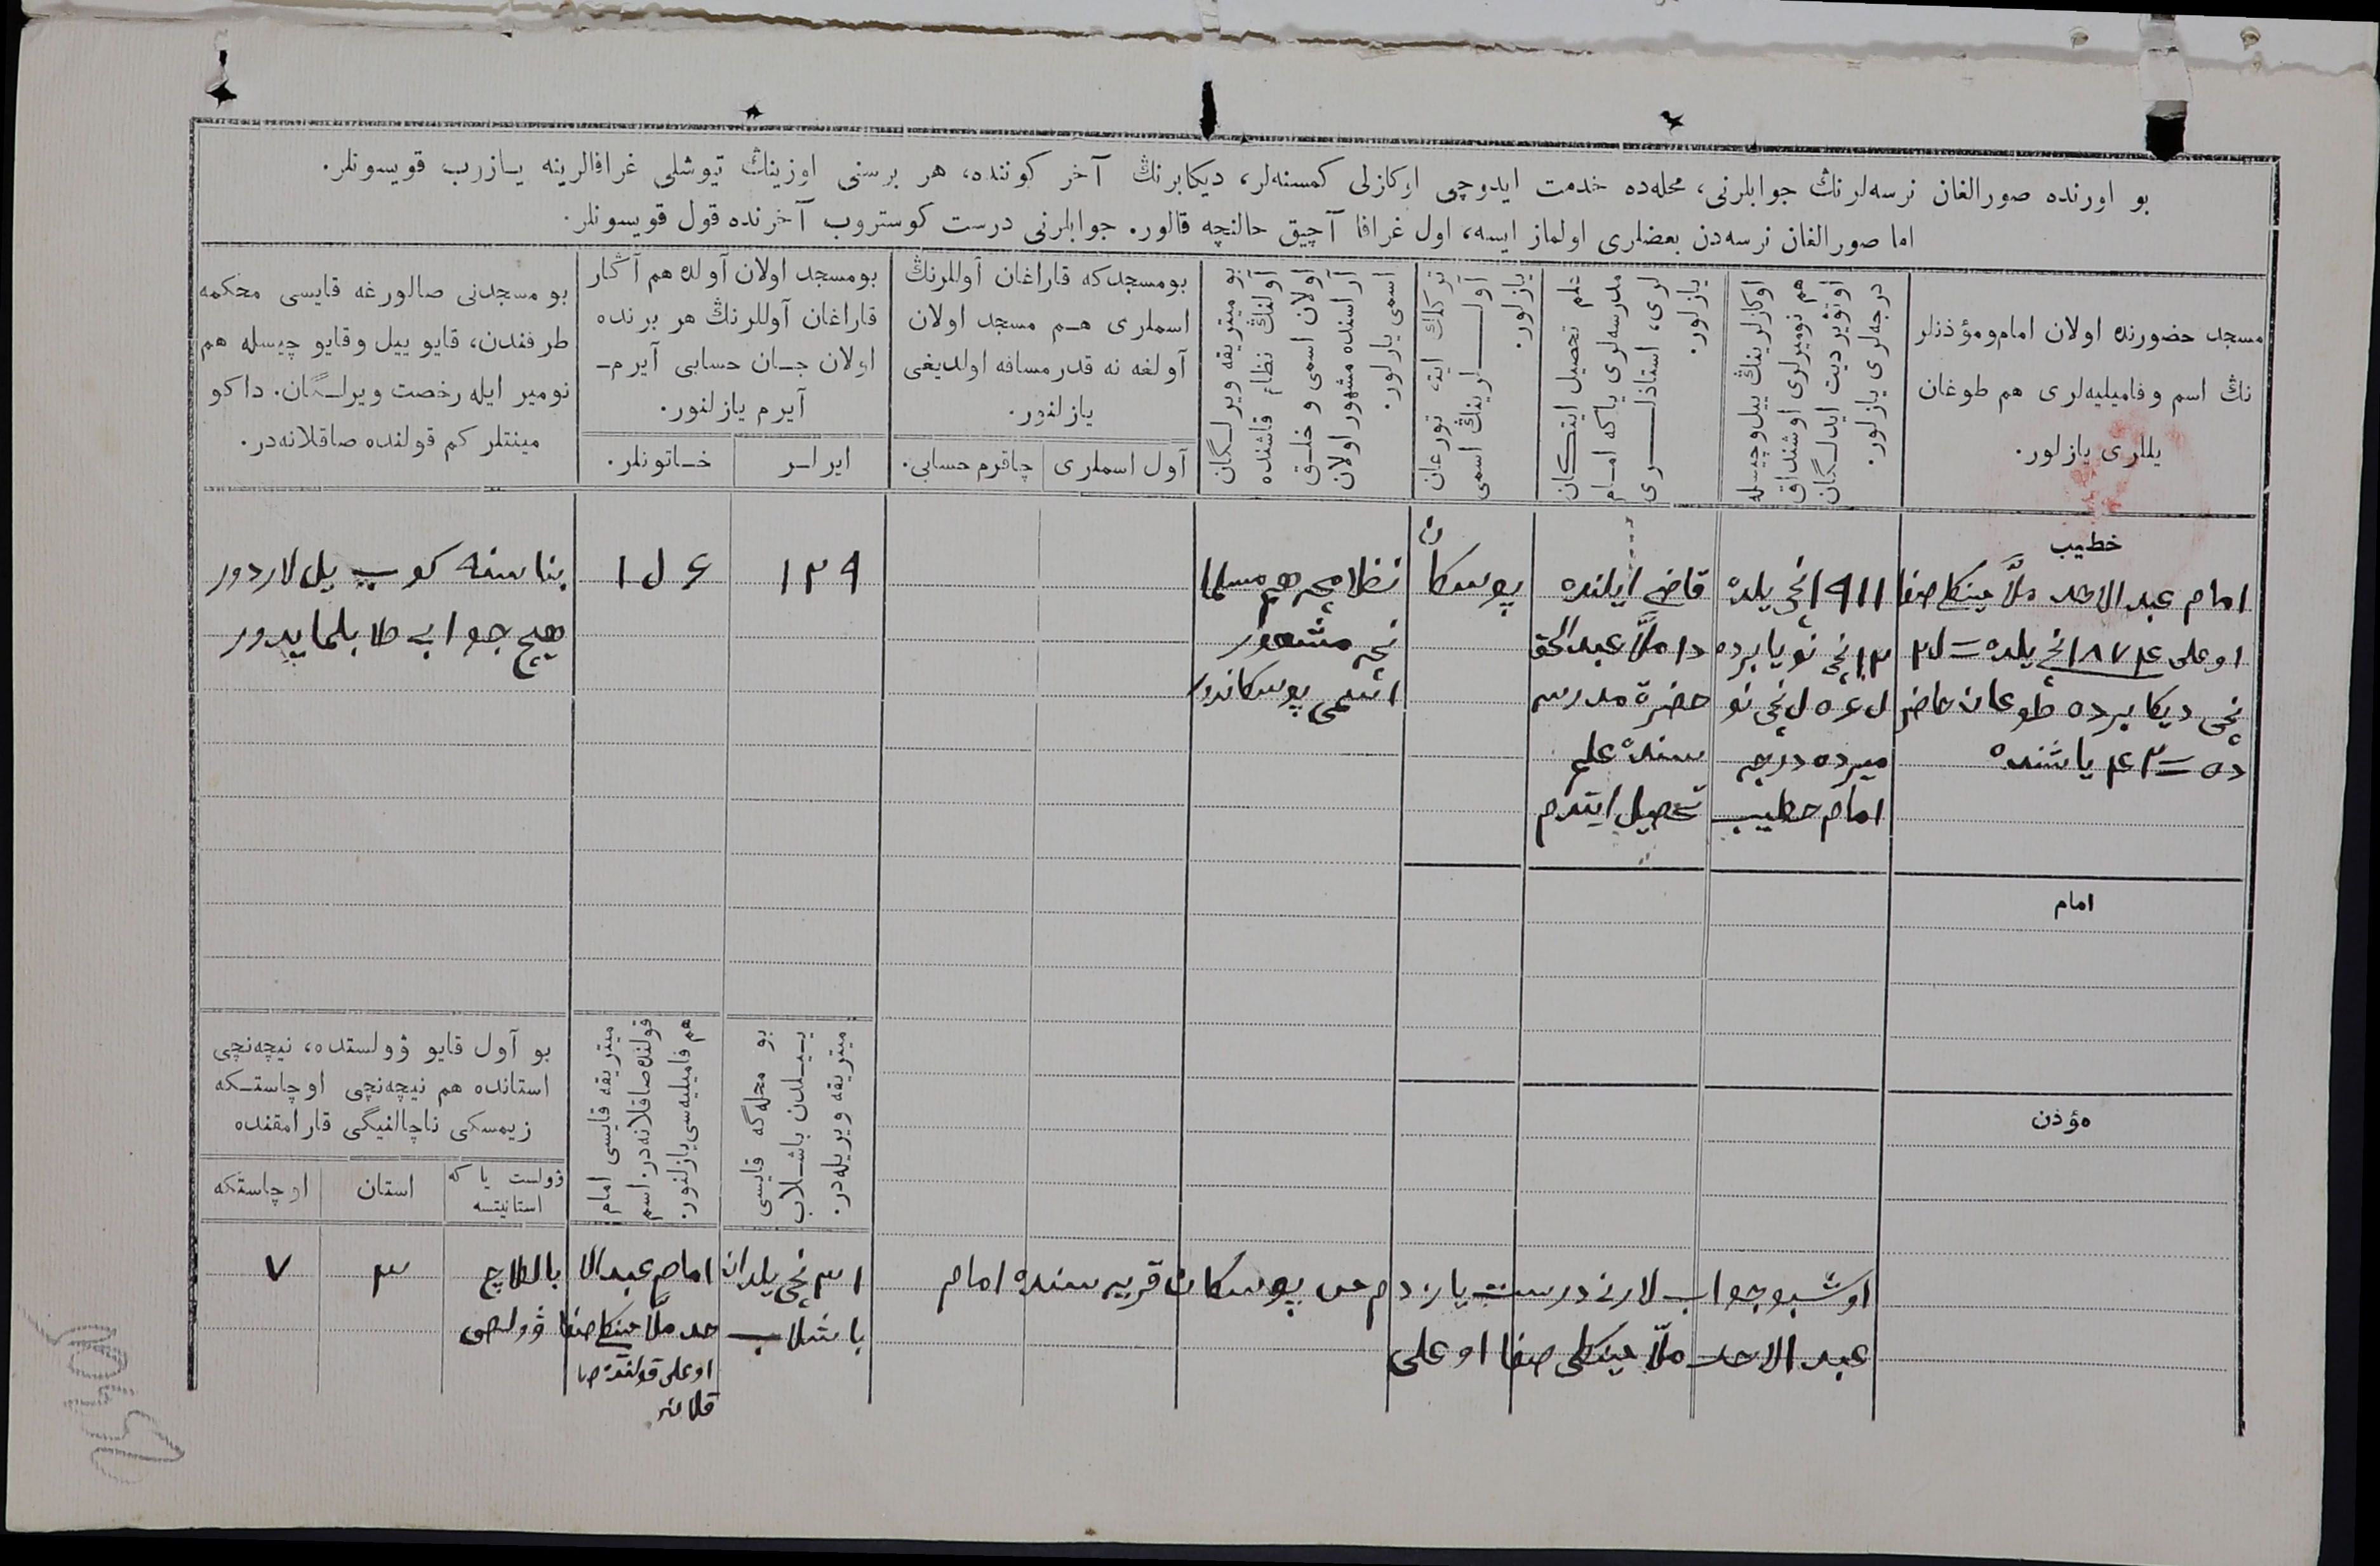 بو اورنده صورالغان نرسه‌لرنڭ جوابلرنی، محله‌ده خدمت ایدوچی اوکازلی کمسنه‌لر، دیکابرنڭ آخر کوننده، هر برسنی اوزینڭ تیوشلی غرافالرینه یازوب قویسونلر.
اما صورالغان نرسه‌دن بعضلری اولماز ایسه، اول غرافا آچیق حالنچه قالور. جوابلرنی درست کوستروب آخرنده قول قویسونلر.
مسجد حضورنده اولان امام و مؤذنلر
نڭ اسم وفامیلیه‌لری هم طوغان
یللری یازلور.
اوکازلرینڭ ییل وچیسله
هم نومیرلری اوشنداق
اوتویردیت ایدلگان
درجه‌لری یازلور.
علم تحصیل ایتکان
مدرسه‌لری یاکه امام
لری، استاذلری
یازلور.
ترکلك ایته، تورغان
آوللرینڭ اسمی
یازلور.
بو میتریقه ویرلگان
آولنڭ نظام قاشنده
اولان اسمی و خلق
آراسنده مشهور اولان
اسمی یازلور.
بومسجدکه قاراغان آوللرنڭ
اسملری هم مسجد اولان
آولغه نه قدر مسافه اولدیغی
یازلنور.
آول اسملری
چاقرم حسابی.
بومسجد اولان آولده هم آڭار
قاراغان آوللرنڭ هر برنده
اولان جان حسابی آیرم-
آیرم یازلنور.
ایرلر
خاتونلر.
بو مسجدنی صالورغه قایسی محکمه
طرفندن، قایو ییل وقایو چیسله هم
نومیر ایله رخصت ویرلگان. داکو
مینتلر کم قولنده صاقلانه‌در.
خطیب
امام عبد الاحد ملّا مینکلی صفا
اوغلی ١٨٧٤ نچی یلده
نچی دیکابرده طوغان حاضر
ده ٤٣ یاشنده
١٩١١ نچی یلده
میرده درجه
امام خطیب
قاضی ایلنده
داملّا عبدالحق
حضرة مدرسه
سنده علم
تحصیل ایتدم
پوسکان
نظامچه هم مسلما
نچه مشهور
اسمی پوسکاندور
١٣٩
بناسنه کوب یل لاردور
هیچ جوابی طابلمایدور
امام
مؤذن
بو محله‌گه قایسی
ییلدن باشلاب
میتریقه ویریله‌در.
میتریقه قایسی امام
قولنده صاقلانه‌در. اسم
هم فامیلیه‌سی یازلنور.
بو آول قایو ۋولستده، نیچه‌نچی
استانده هم نیچه‌نچی اوچاستکه
زیمسکی ناچالنیگی قارامقنده
ۋولست یا که
استانیتسه
استان
اوچاستکه
٣١ نچی یلدان
باشلاب
امام عبدالا
حد ملّا مینکلی صفا
اوغلی قولنده صا
قلانه
٣
٧
اوشبو جواب لارنی درست یازدم من پوسکان قریه سنده امام
عبد الاحد ملّا مینکلی صفا اوغلی